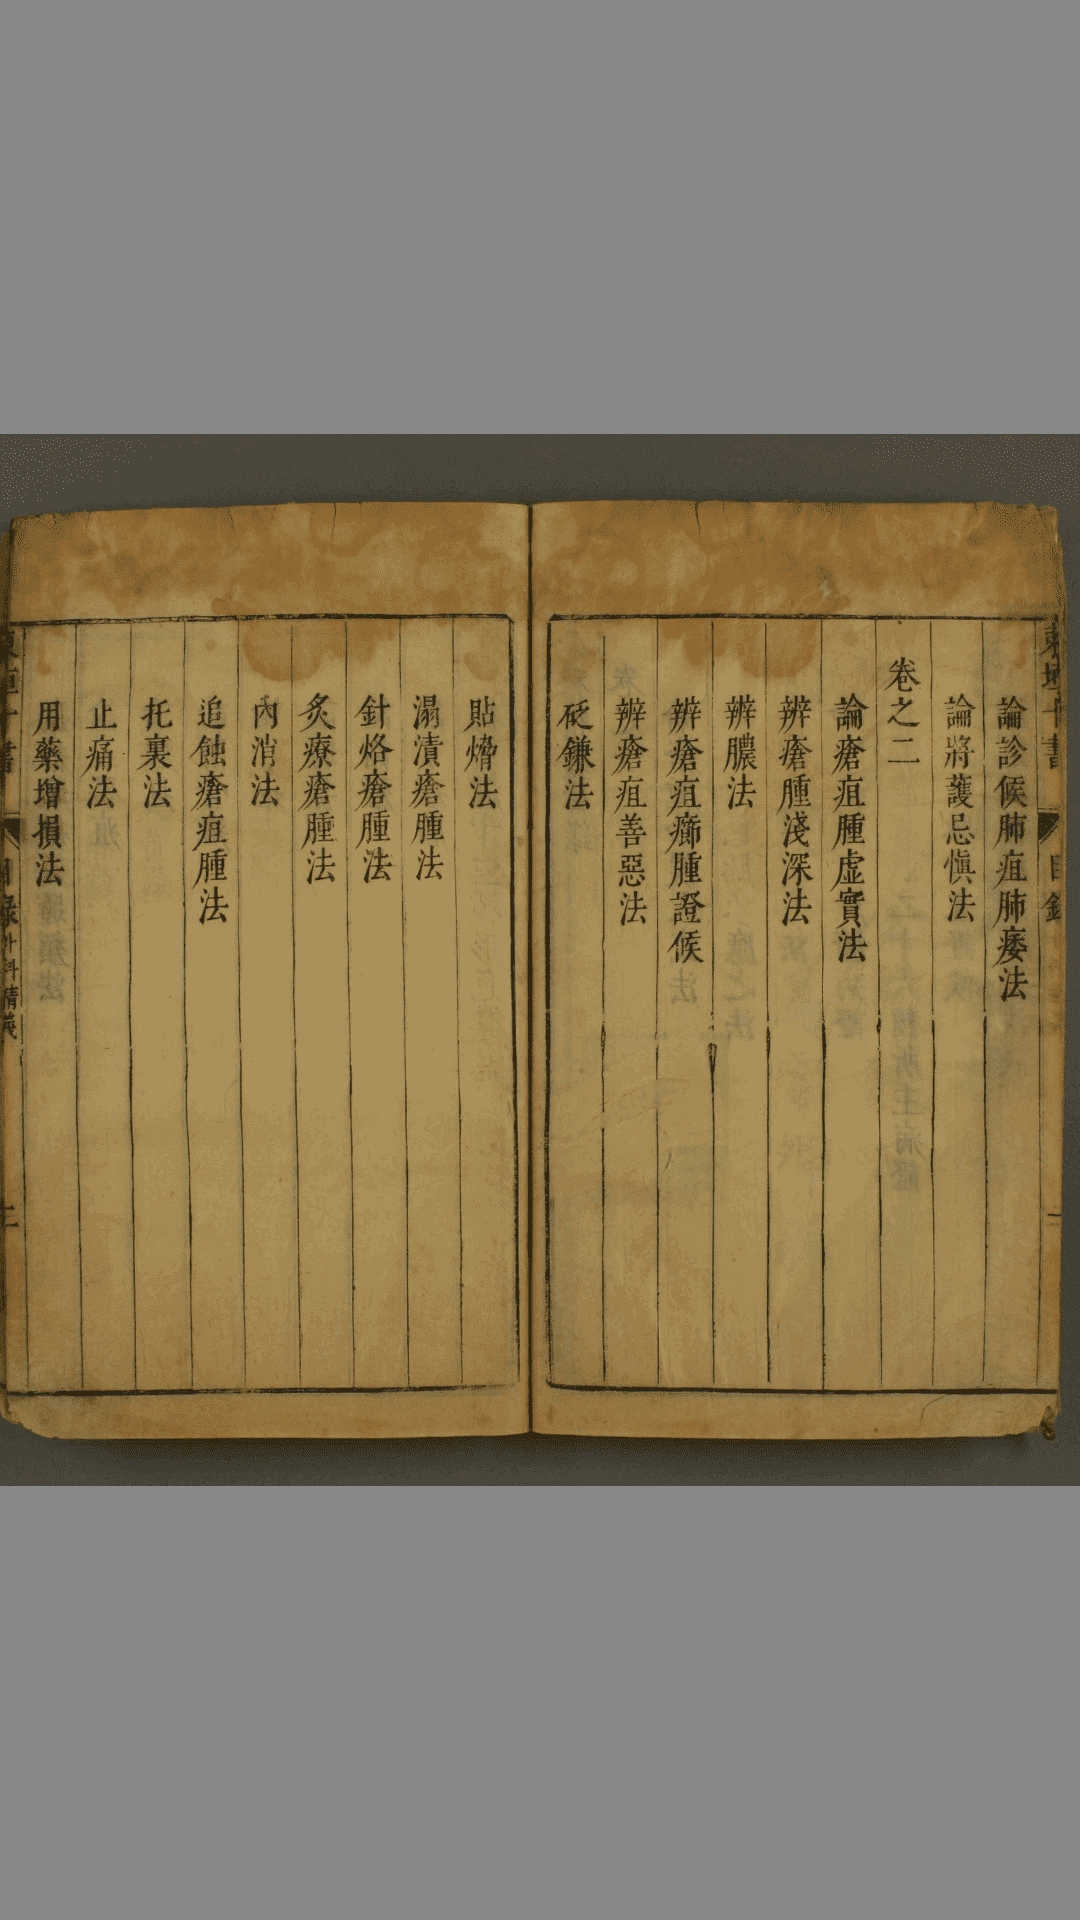 論診候肺疽肺痿法
論將護忌慎法
卷之二
論瘡疽腫虛實法
辨瘡腫淺深法
辨膿法
辨瘡疽癤腫證候
辨瘡疽善惡法
砭鎌法
貼熁法
溻漬瘡腫法
針烙瘡腫法
灸療瘡腫法
內消法
追蝕瘡疽腫法
托裏法
止痛法
用藥增損法
目錄 外科精義